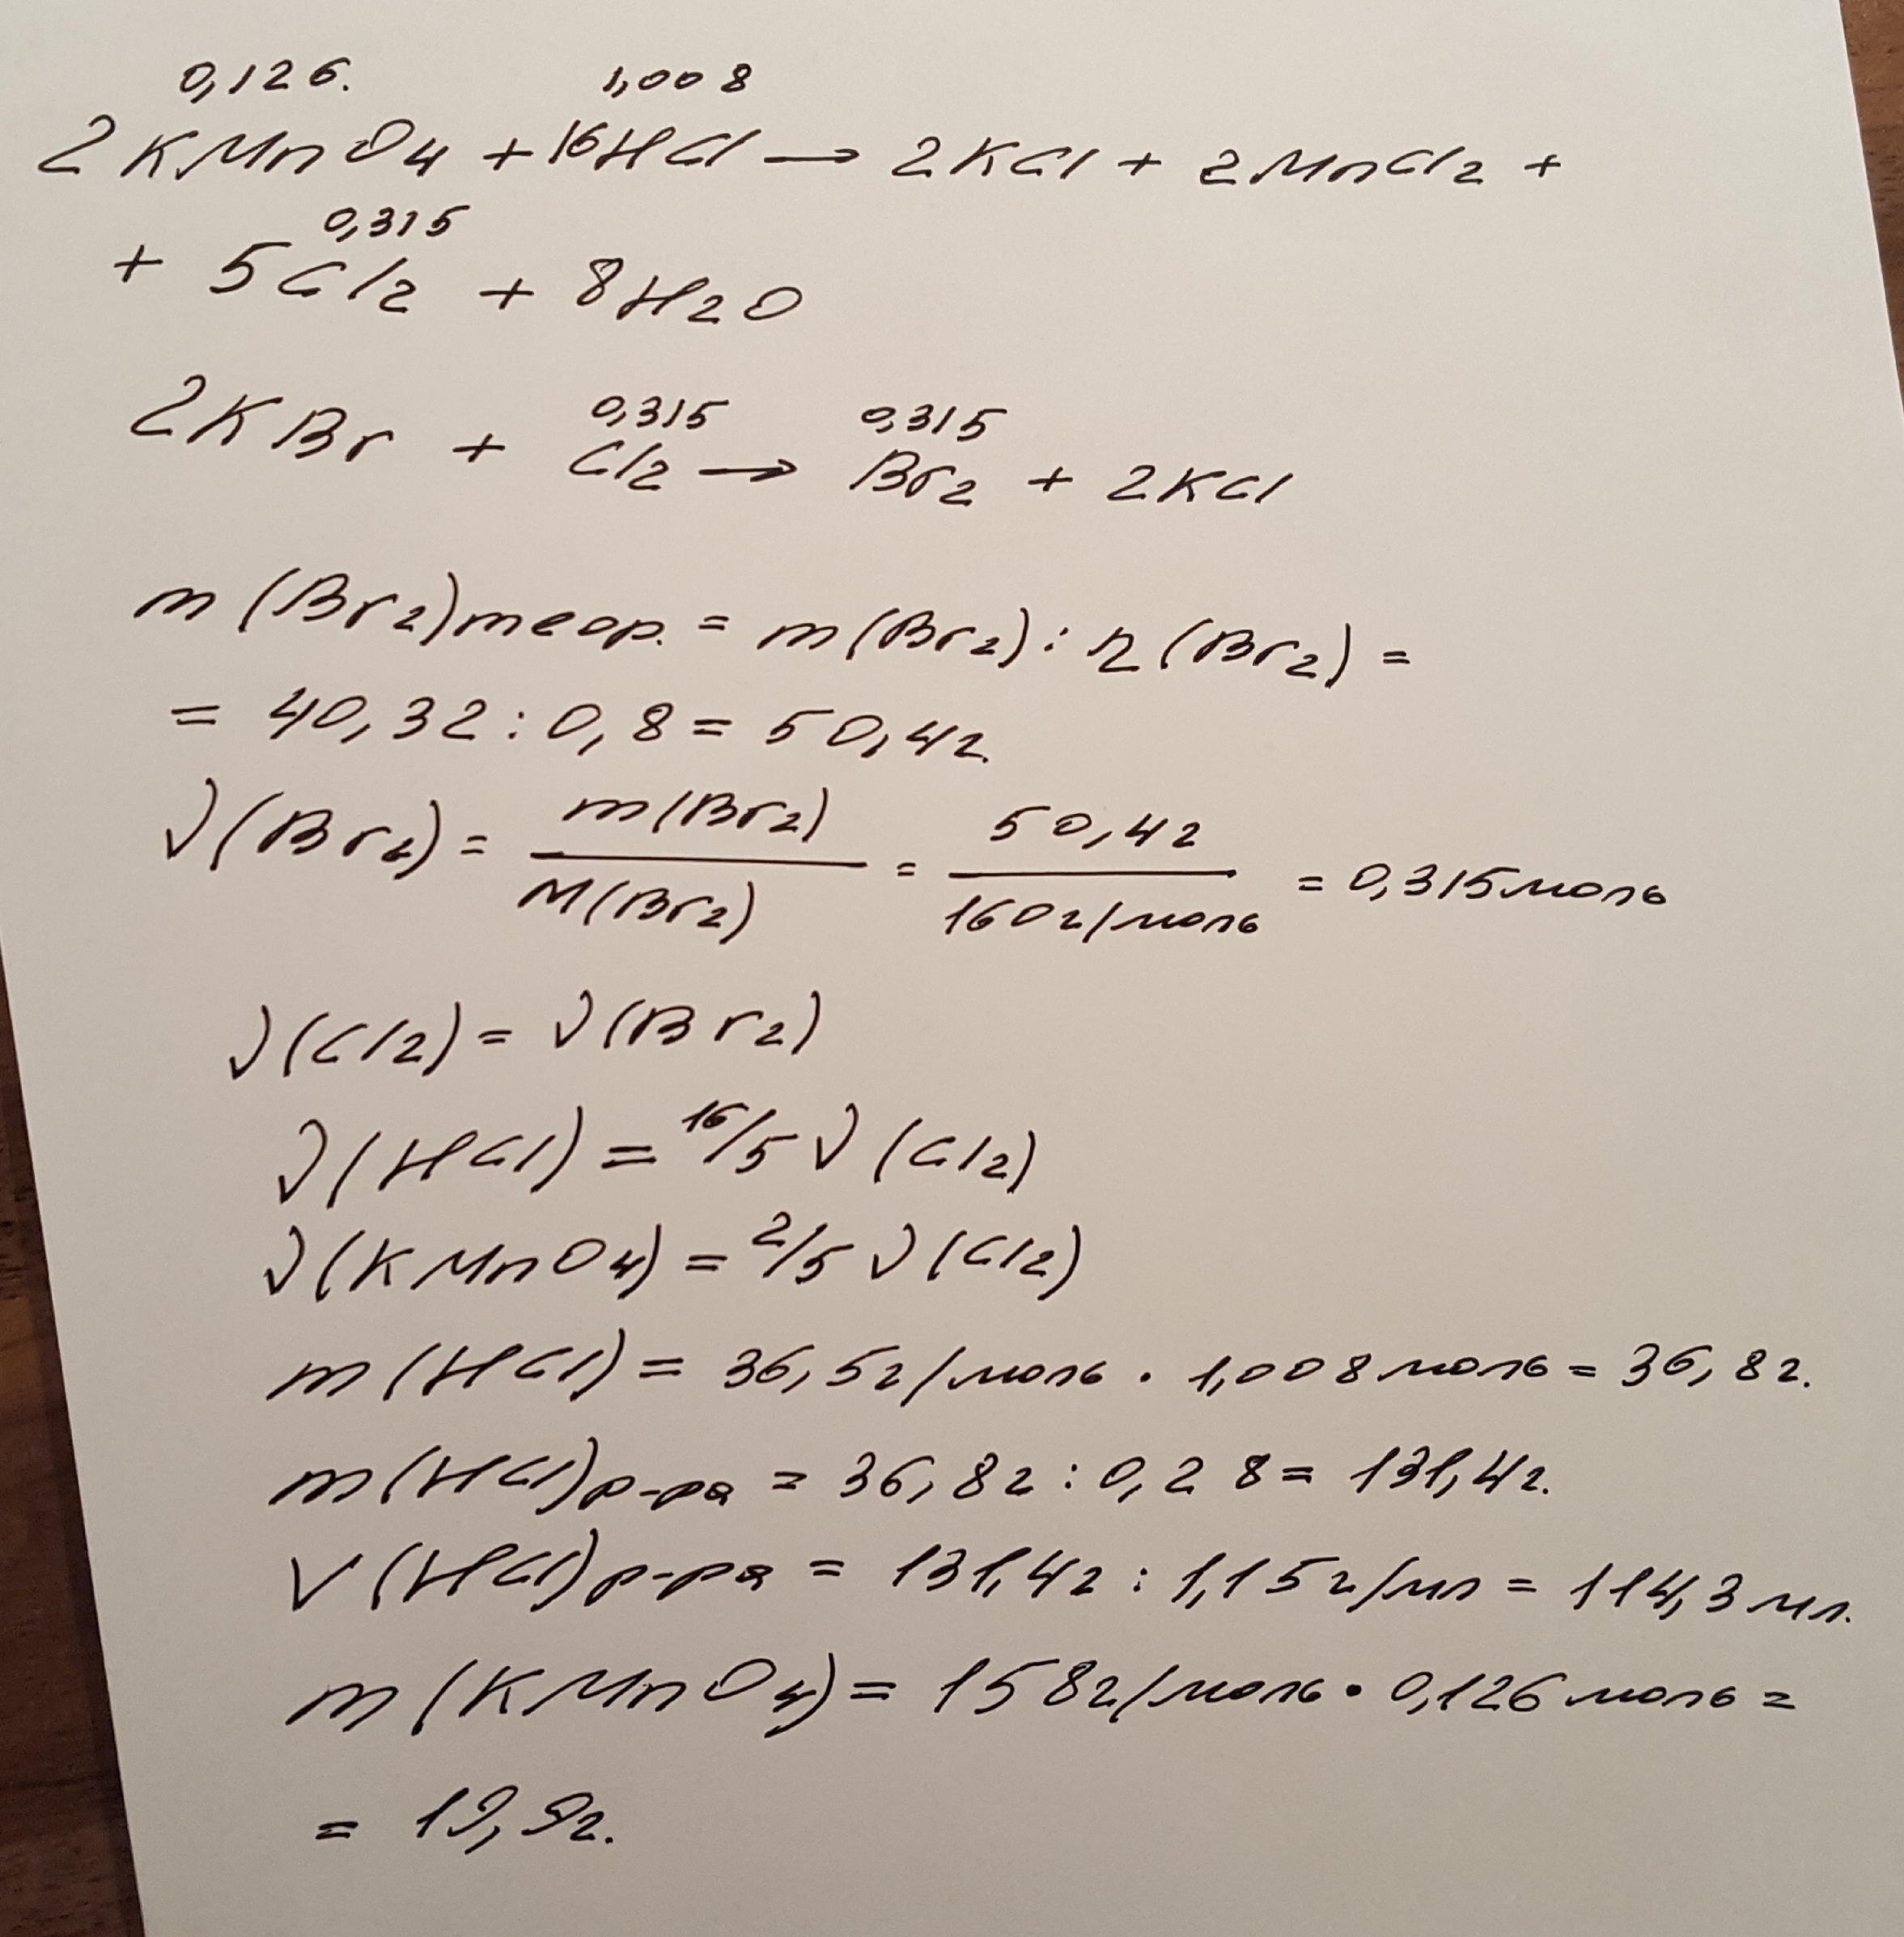 0,126. 1,008
2KMnO4 + 16HCl → 2KCl + 2MnCl2 +
0,315
+ 5Cl2 + 8H2O
0,315 0,315
2KBr + Cl2 → Br2 + 2KCl
m(Br2)теор. = m(Br2) : η(Br2) =
= 40,32 : 0,8 = 50,4г.
ν(Br2) = m(Br2) / M(Br2) = 50,4г / 160г/моль = 0,315моль
ν(Cl2) = ν(Br2)
ν(HCl) = 16/5 ν(Cl2)
ν(KMnO4) = 2/5 ν(Cl2)
m(HCl) = 36,5г/моль · 1,008моль = 36,8г.
m(HCl)р-ра = 36,8г : 0,28 = 131,4г.
V(HCl)р-ра = 131,4г : 1,15г/мл = 114,3мл.
m(KMnO4) = 158г/моль · 0,126моль =
= 19,9г.